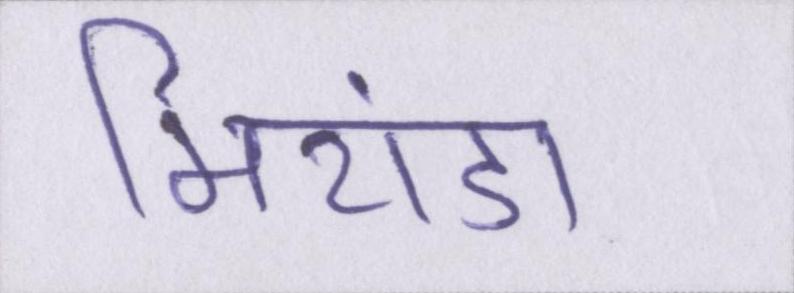 मिरांडा